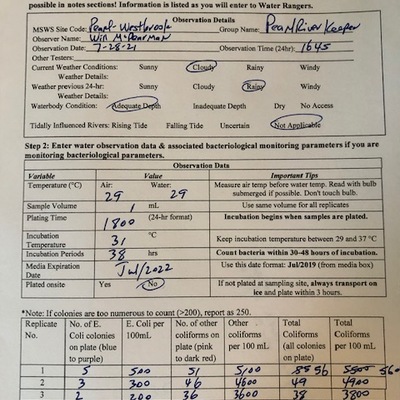 possible in notes sections! Information is listed as you will enter to Water Rangers.
Observation Details
MSWS Site Code: Pearl-Westbrook Group Name: Pearl River Keeper
Observer Name: Win McPearman
Observation Date: 7-28-21 Observation Time (24hr): 1645
Other Testers:
Current Weather Conditions: Sunny Cloudy Rainy Windy
Weather Details:
Weather previous 24-hr: Sunny Cloudy Rainy Windy
Weather Details:
Waterbody Condition: Adequate Depth Inadequate Depth Dry No Access
Tidally Influenced Rivers: Rising Tide Falling Tide Uncertain Not Applicable
Step 2: Enter water observation data & associated bacteriological monitoring parameters if you are
monitoring bacteriological parameters.
Observation Data
Variable Your Data Important Tips
Temperature (°C) Air: 29 Water: 29 Measure air temp before water temp. Read with bulb
submerged if possible. Don't touch bulb.
Sample Volume 1 mL Use same volume for all replicates
Plating Time 1800 (24-hr format) Incubation begins when samples are plated.
Incubation
Temperature 31 °C Keep incubation temperature between 29 and 37 °C
Incubation Periods 38 hrs Count bacteria within 30-48 hours of incubation.
Media Expiration
Date Jul/2022 Use this date format: Jul/2019 (from media box)
Plated onsite Yes No If not plated at sampling site, always transport on
ice and plate within 3 hours.
*Note: If colonies are too numerous to count (>200), report as 250.
Replicate No. of E. E. Coli per No. of other Other Total Total
No. Coli colonies 100mL coliforms on coliforms Coliforms Coliforms
on plate (blue plate (pink per 100 mL (all colonies per 100 mL
to purple) to dark red) on plate)
1 5 500 51 5100 56 560
2 3 300 46 4600 49 4900
3 2 200 36 3600 38 3800